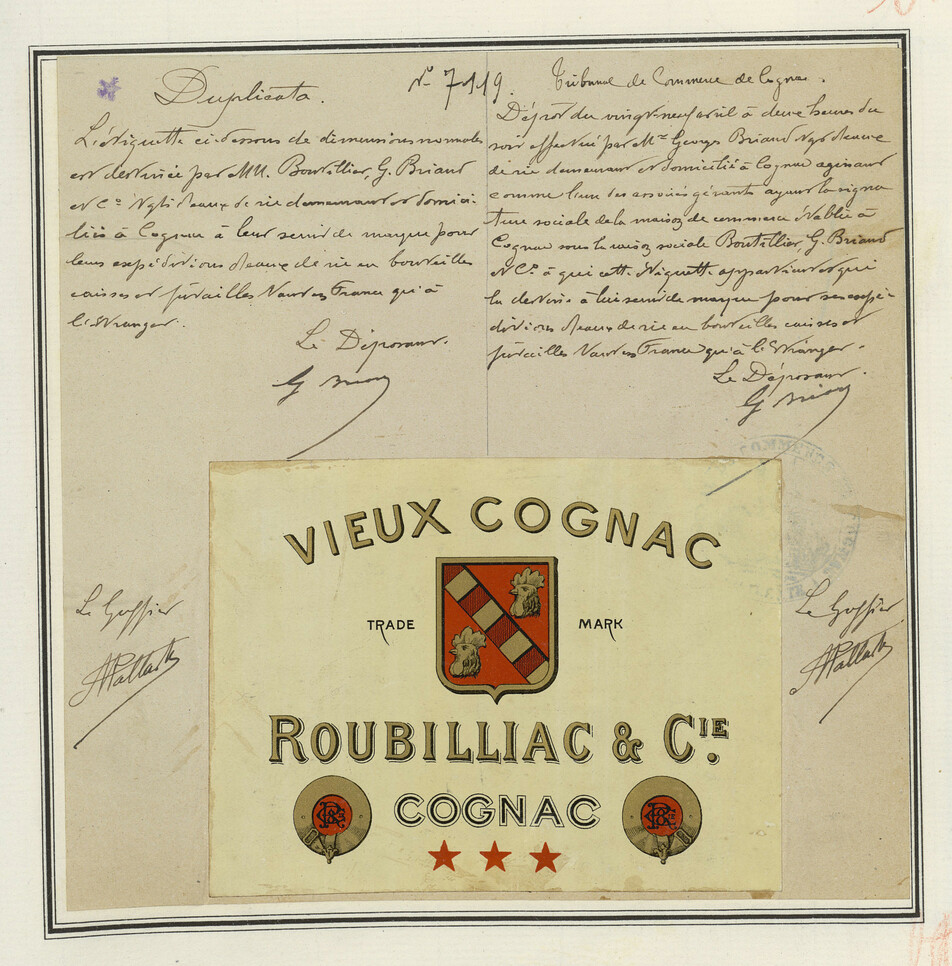 Duplicata.
L'étiquette ci-dessous de dimensions normales
est destinée par MM. Boutillier, G. Briand
et Cie Négts d'eaux de vie demeurant et domici-
liés à Cognac à leur servir de marque pour
leurs expéditions d'eaux de vie en bouteilles
caisses et futailles tant en France qu'à
l'étranger.
Le Déposant.
G Briand
No 7119. Tribunal de Commerce de Cognac.
Dépôt du vingt-neuf avril à deux heures du
soir effectué par Mr Georges Briand Négt d'eaux
de vie demeurant et domicilié à Cognac agissant
comme l'un des associés gérants ayant la signa-
ture sociale de la maison de commerce établie à
Cognac sous la raison sociale Boutillier, G. Briand
et Cie à qui cette étiquette appartient et qui
la destine à lui servir de marque pour ses expé-
ditions d'eaux de vie en bouteilles caisses et
futailles tant en France qu'à l'étranger.
Le Déposant.
G Briand
VIEUX COGNAC
TRADE MARK
ROUBILLIAC & CIE.
COGNAC
Le Greffier
Le Greffier